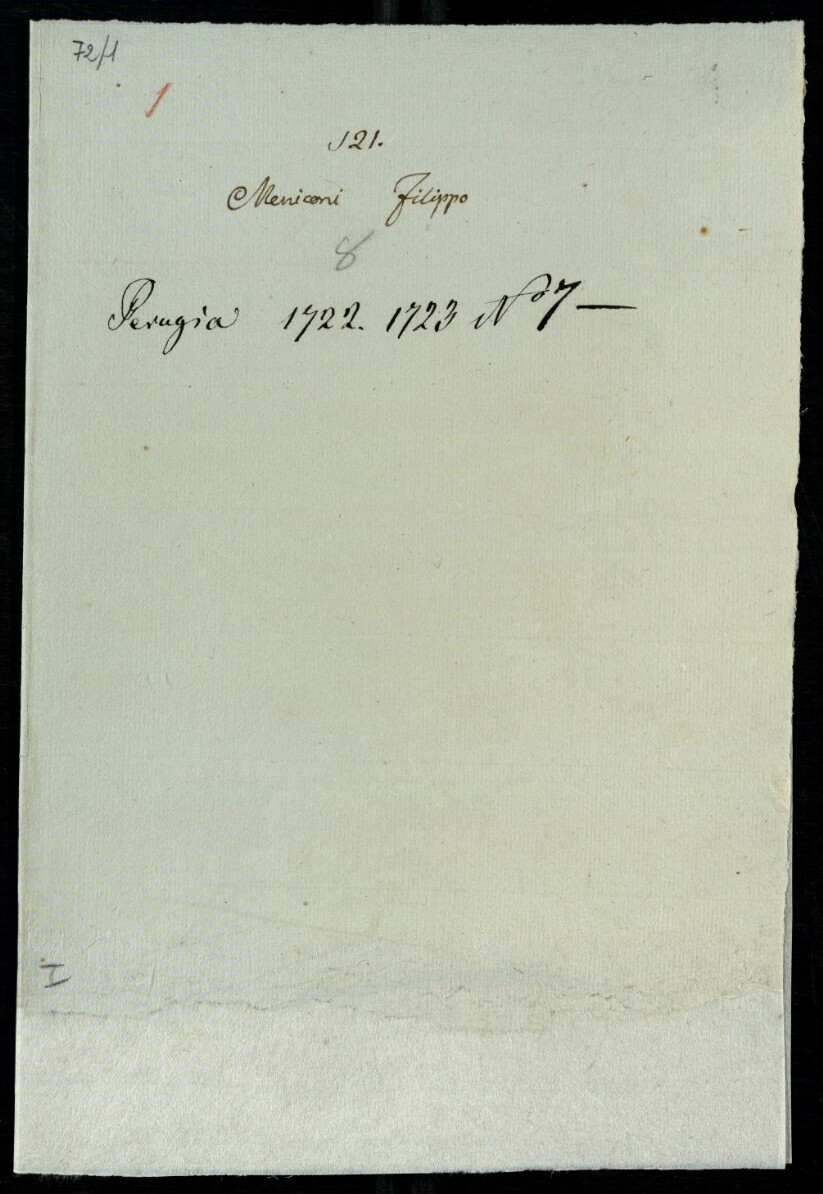 72/1
1
121.
Meniconi Filippo
8
Perugia 1722. 1723 No 7 —
I